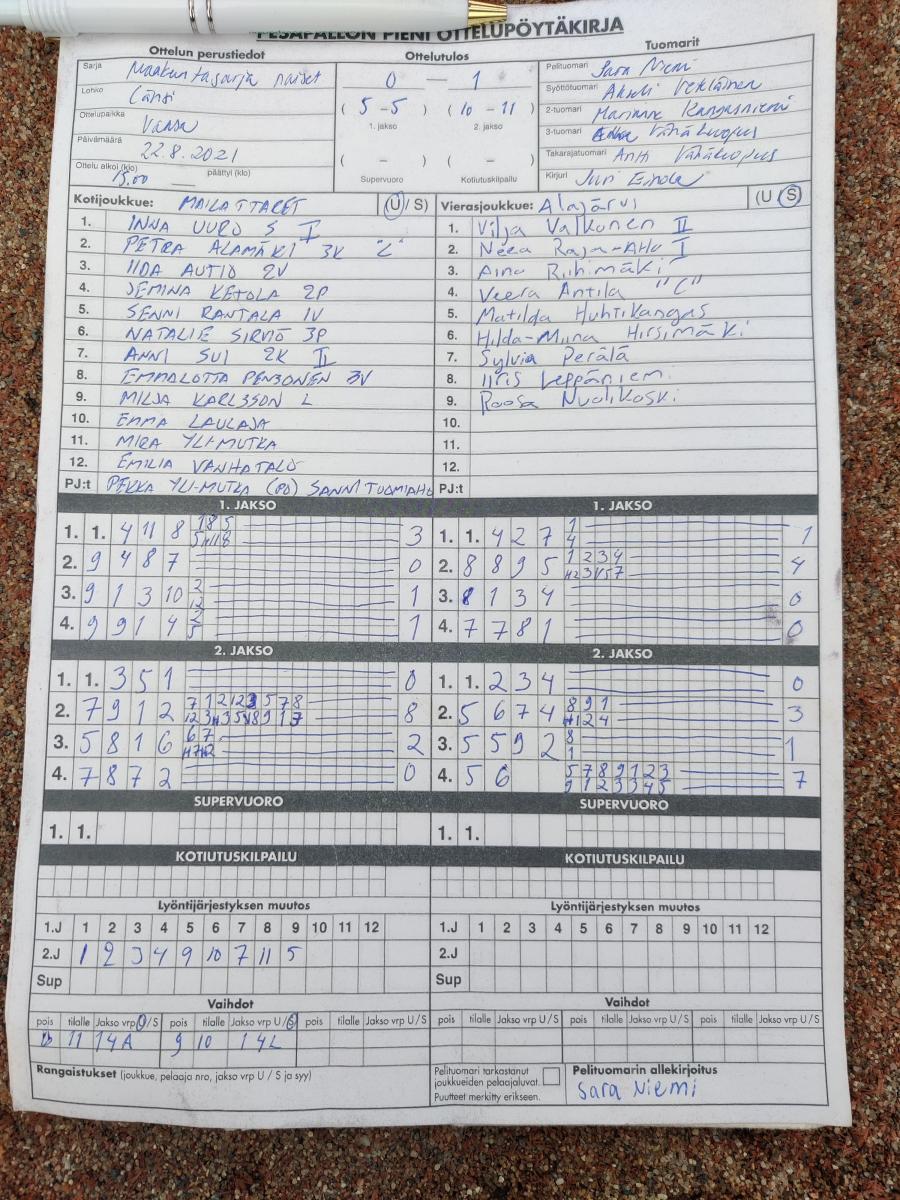 PESÄPALLON PIENI OTTELUPÖYTÄKIRJA
Ottelun perustiedot
Sarja Maakuntasarja naiset
Lohko Länsi
Ottelupaikka Vaasa
Päivämäärä 22.8.2021
Ottelu alkoi (klo) 15.00 päättyi (klo)
Ottelutulos
0 — 1
( 5 - 5 ) ( 10 - 11 )
1. jakso 2. jakso
( – ) ( – )
Supervuoro Kotiutuskilpailu
Tuomarit
Pelituomari Sara Niemi
Syöttötuomari
2-tuomari Marianne Kangasniemi
3-tuomari Vähäluopus
Takarajatuomari Antti Vähäluopus
Kirjuri
Kotijoukkue: MAILATTARET (U / S)
1. INNA UURO S I
2. PETRA ALAMÄKI 3K "C"
3. IIDA AUTIO 2V
4. JEMINA KETOLA 2P
5. SENNI RANTALA 1V
6. NATALIE SIRVIÖ 3P
7. ANNI SUI 2K II
8. EMMALOTTA PENSONEN 3V
9. MILJA KARLSSON L
10. EMMA LAULAJA
11. MIRA YLI-MUTKA
12. EMILIA VANHATALO
PJ:t PEKKA YLI-MUTKA (PJ) SANNI TUOMIAHO
Vierasjoukkue: Alajärvi (U / S)
1. Vilja Valkonen II
2. Neea Raja-Aho I
3. Aino Riihimäki
4. Veera Antila "C"
5. Matilda Huhtikangas
6. Hilda-Miina Hirsimäki
7. Sylvia Perälä
8. Iiris Leppäniemi
9. Roosa Nuolikoski
10.
11.
12.
PJ:t
1. JAKSO
1. 1. 4 11 8 3
2. 9 4 8 7 0
3. 9 1 3 10 2 12 1
4. 9 9 1 4 2 5 1
1. JAKSO
1. 1. 4 2 7 1 4 1
2. 8 8 9 5 1 2 3 4 4
3. 8 1 3 4 0
4. 7 7 8 1 0
2. JAKSO
1. 1. 3 5 1 0
2. 7 9 1 2 8
3. 5 8 1 6 6 7 2
4. 7 8 7 2 0
2. JAKSO
1. 1. 2 3 4 0
2. 5 6 7 4 8 9 1 3
3. 5 5 9 2 8 1 1
4. 5 6 5 7 8 9 1 2 3 9 1 2 3 3 4 5 7
SUPERVUORO
1. 1.
SUPERVUORO
1. 1.
KOTIUTUSKILPAILU
KOTIUTUSKILPAILU
Lyöntijärjestyksen muutos
1.J 1 2 3 4 5 6 7 8 9 10 11 12
2.J 1 2 3 4 9 10 7 11 5
Sup
Lyöntijärjestyksen muutos
1.J 1 2 3 4 5 6 7 8 9 10 11 12
2.J
Sup
Vaihdot
pois tilalle Jakso vrp U/S pois tilalle Jakso vrp U/S pois tilalle Jakso vrp U/S
11 1 4A 9 10 1 4L
Vaihdot
pois tilalle Jakso vrp U/S pois tilalle Jakso vrp U/S pois tilalle Jakso vrp U/S
Rangaistukset (joukkue, pelaaja nro, jakso vrp U / S ja syy)
Pelituomari tarkastanut
joukkueiden pelaajaluvat.
Puutteet merkitty erikseen.
Pelituomarin allekirjoitus
Sara Niemi